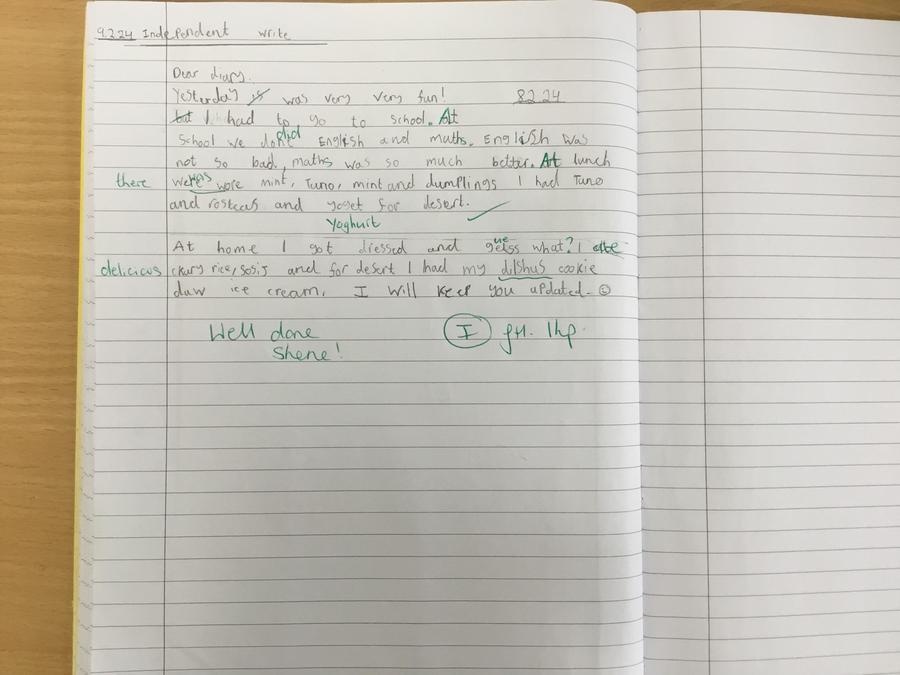 9.2.24 Independent write
Dear diary.
Yesterday is was very very fun! 8.2.24
but I had to go to school. At
school we done did English and maths. English was
not so bad, maths was so much better. At lunch
there were was wore mint, Tuno, mint and dumplings I had Tuno
and rosteas and yoget for desert.
Yoghurt
At home I got dressed and guess what? I ate
delicious ckury rice, sosij and for desert I had my dilshus cookie
duw ice cream. I will keep you updated. ☺
Well done I
Shene!